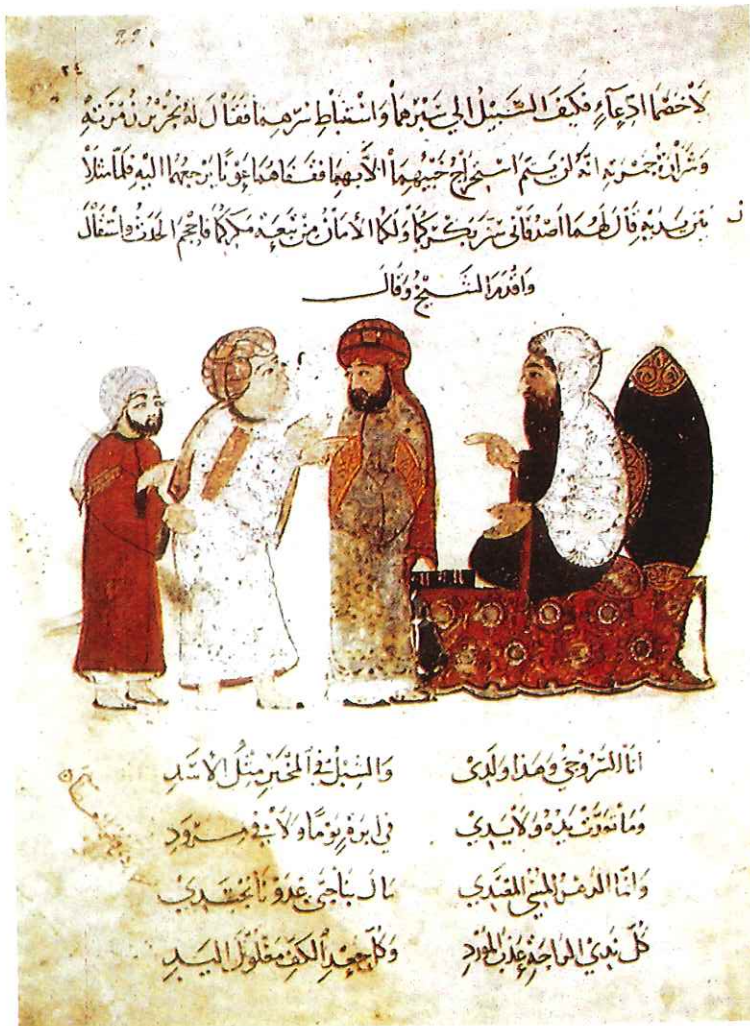 ٢٤
لأخصما ادعاء فكيف السبيل الى سبرهما واستنباط سرهما فقال له نحرير زمرته
وشرارة جمرته انه لن يتم استخراج خبيهما الا بهما فقفاهما عونا يرجعهما اليه فلما مثلا
بين يديه قال لهما اصدقاني سن بكركما ولكما الأمان من تبعة مكركما فاحجم الحدث واستقال
واقدم الشيخ وقال
انا السروجي وهذا ولدي والشبل في المخبر مثل الاسد
وما تعدت يده ولا يدي في ابرة يوما ولا في مرود
وانما الدهر المسيء المعتدي مال بنا حتى غدونا نجتدي
كل ندي الراحة عذب المورد وكل جعد الكف مغلول اليد